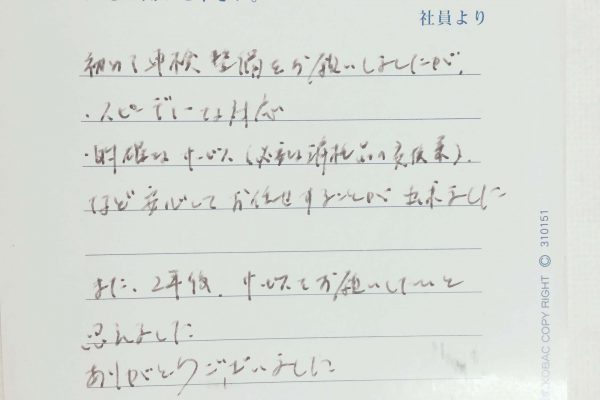 社員より
初めて車検整備をお願いしましたが、
・スピーディーな対応
・的確なサービス(必要な消耗品の交換等)、
など安心してお任せすることが出来ました
また、2年後、サービスをお願いしたいと
思えました
ありがとうございました
KOBAC COPY RIGHT © 310151